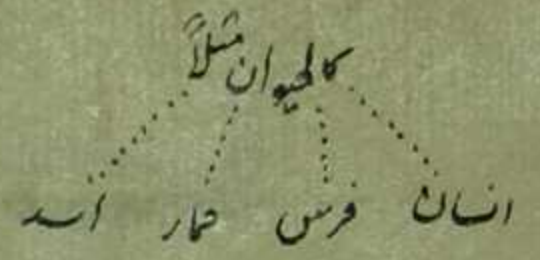 كالحيوان مثلاً
انسان فرس حمار اسد